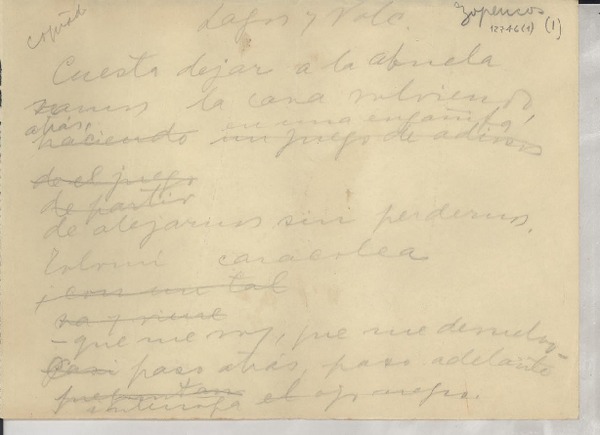 copiad
Lagos y Volc.
Zopencos
12746(1) (1)
Cuesta dejar a la abuela
la cara volviendo,
atrás, en una engañifa
haciendo un juego de adioses
de el juego
de partir
de alejarnos sin perdernos.
caracolea
con un tal
va y viene
- que me voy, que me devuelvo -
Casi paso atrás, paso adelante
el ojo negro.